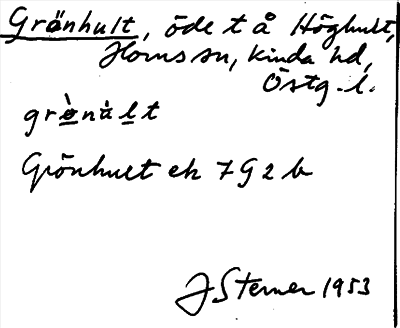 Grönhult, öde t å Höghult,
Horns sn, Kinda hd,
Östg. l.
grö̀nàlt
Grönhult ek 7G2b
J Sterner 1953